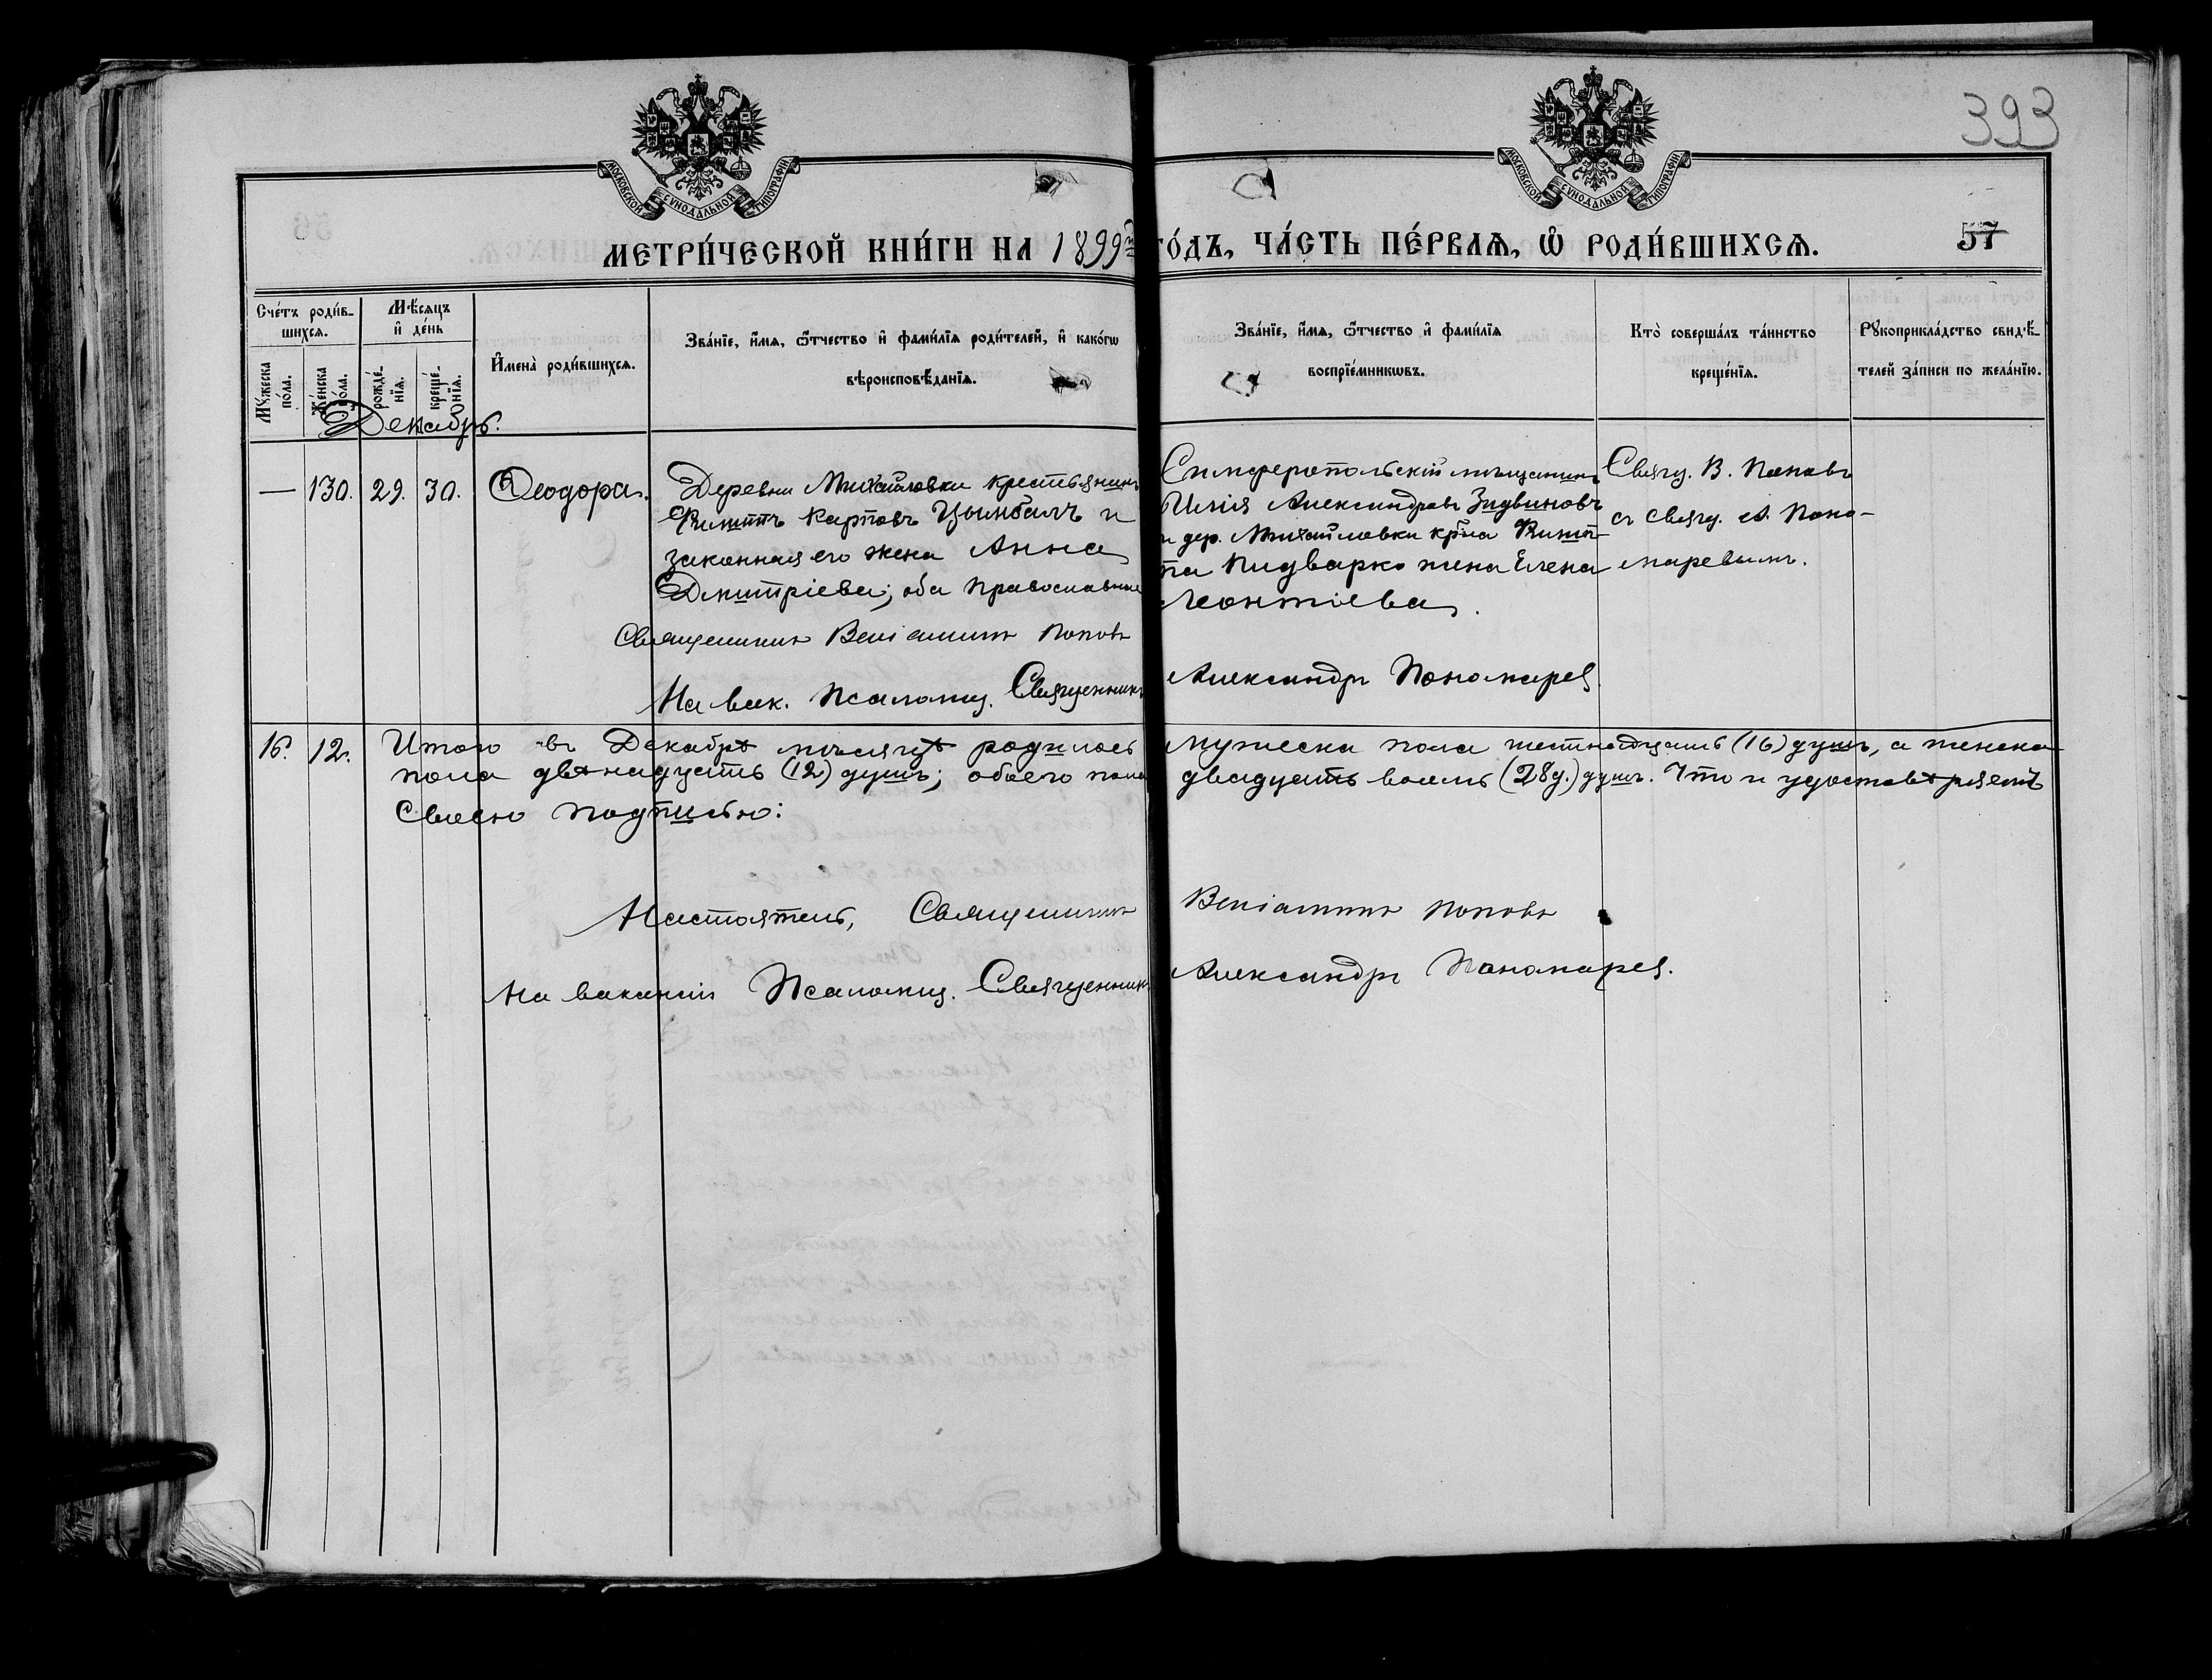 393
МОСКОВСКОЙ СѴНОДАЛЬНОЙ ТИПОГРАФІИ
МОСКОВСКОЙ СѴНОДАЛЬНОЙ ТИПОГРАФІИ
МЕТРИ́ЧЕСКОЙ КНИ́ГИ НА 1899й ГО́ДЪ, ЧА́СТЬ ПЕ́РВАѦ, Ѡ҆ РОДИ́ВШИХСѦ.
57
Сче́тъ роди́в-
шихсѧ.
Мꙋ́жеска
по́ла.
Же́нска
по́ла.
Мѣ́сяцъ
и҆ де́нь
рожде́-
нїѧ.
креще́-
нїѧ.
И҆мена̀ роди́вшихсѧ.
Зва́нїе, и҆́мѧ, ѻ҆́тчество и҆ фами́лїѧ роди́телей, и҆ како́гѡ
вѣроисповѣ́данїѧ.
Зва́нїе, и҆́мѧ, ѻ҆́тчество и҆ фами́лїѧ
воспрїе́мникѡвъ.
Кто̀ соверша́лъ та́инство
креще́нїѧ.
Рꙋкоприкла́дство свидѣ́-
телей за́писи по жела́нїю.
Декабрь.
— 130. 29. 30. Ѳеодора.
Деревни Михайловки крестьянинъ
Филиппъ Карповъ Цымбалъ и
законная его жена Анна
Димитріева; оба православные
Симферопольскій мѣщанинъ
Илія Александровъ
и дер. Михайловки кр-на Филип-
па Пидварко жена Елена
Леонтіева.
Свящ. В. Поповъ
съ свящ. А. Поно-
маревымъ.
Священникъ Веніаминъ Поповъ
На вак. Псаломщ. Священникъ Александръ Пономарев
16. 12. Итого въ Декабрѣ мѣсяцѣ родилось мужеска пола шестнадцать (16) душъ, а женска
пола двѣнадцать (12) душъ; обоего пола двадцать восемь (28 д.) душъ. Что и удостовѣряемъ
своею подписью:
Настоятель, Священникъ Веніаминъ Поповъ
На вакансіи Псаломщ. Священникъ Александръ Пономарев.